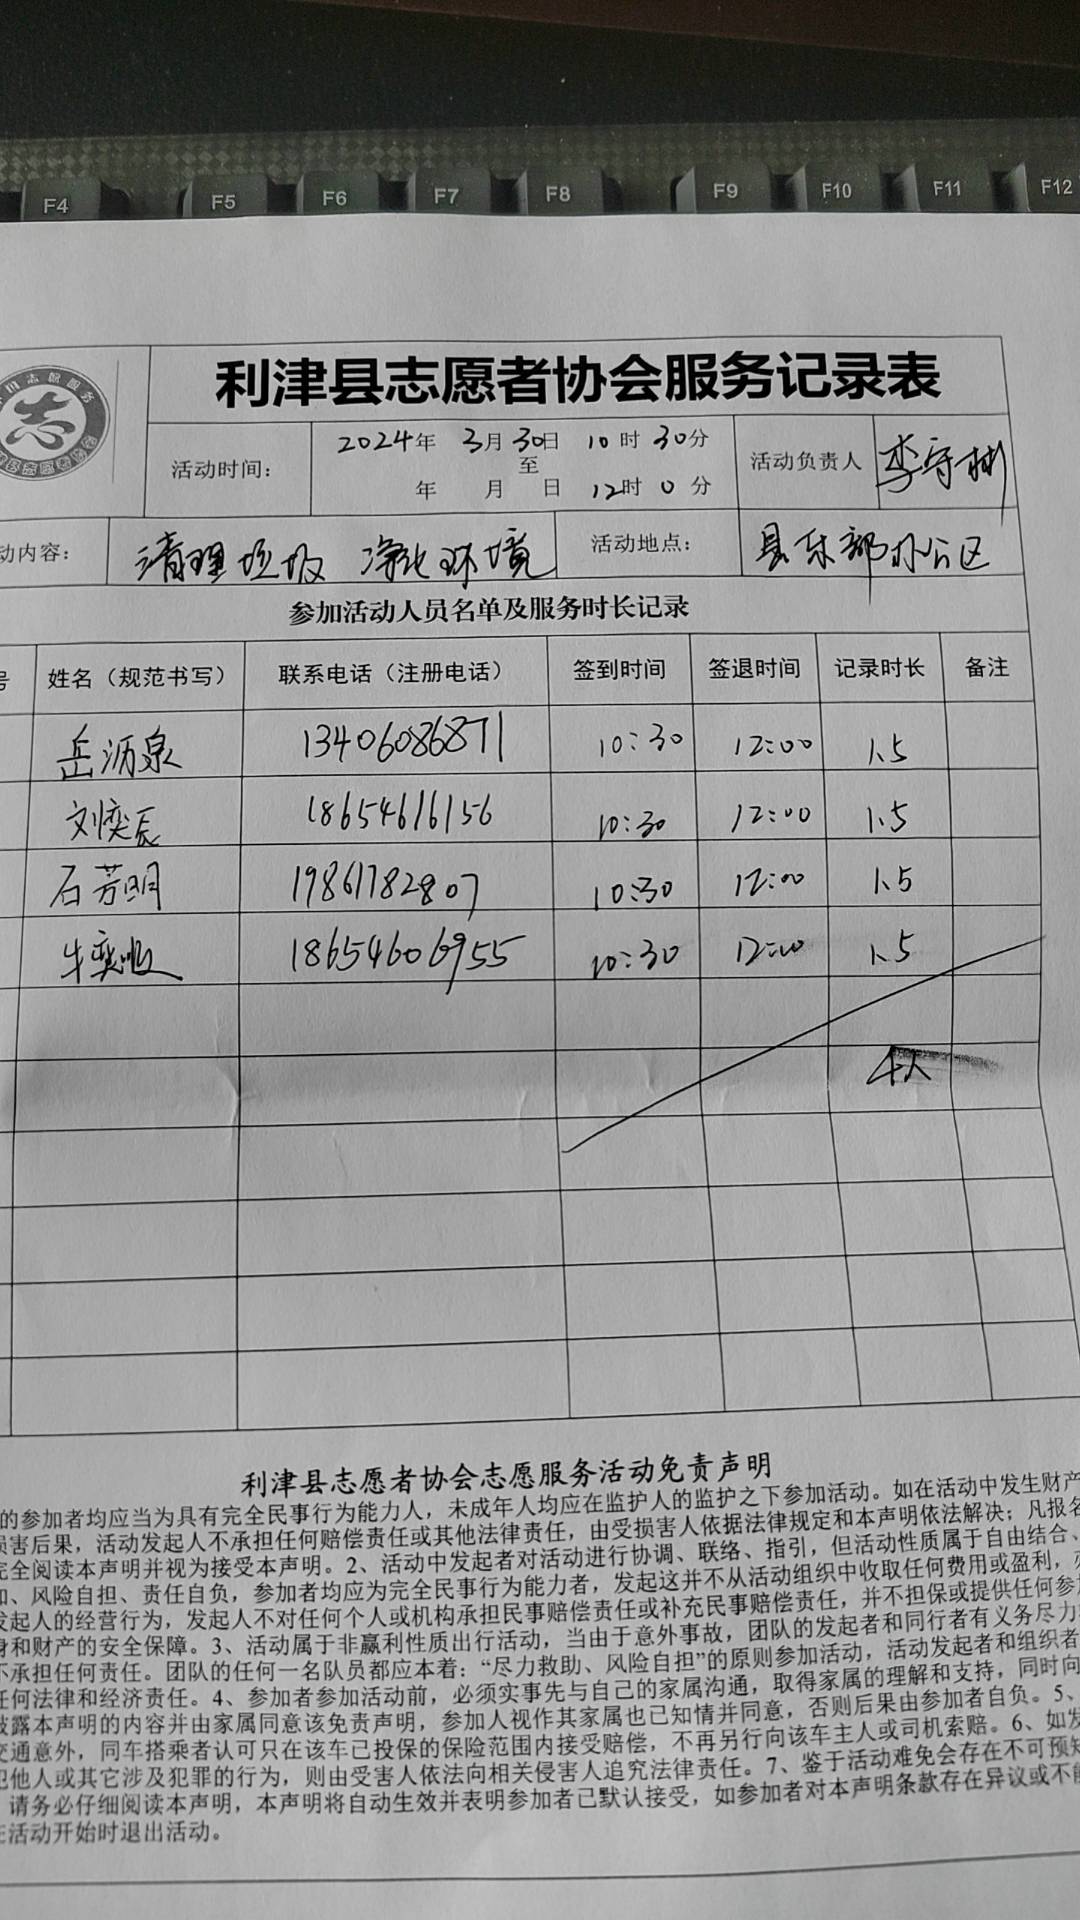 F4 F5 F6 F7 F8 F9 F10 F11 F12
志
利津县志愿者协会服务记录表
活动时间： 2024年 3月30日 10时 30分
至
年 月 日 12时 0分
活动负责人 李守彬
动内容： 清理垃圾 净化环境 活动地点： 县东部办公区
参加活动人员名单及服务时长记录
号 姓名（规范书写） 联系电话（注册电话） 签到时间 签退时间 记录时长 备注
岳沥泉 13406086871 10:30 12:00 1.5
刘奕辰 18654616156 10:30 12:00 1.5
石芳明 19861782807 10:30 12:00 1.5
牛奕 18654606955 10:30 12:00 1.5
4人
利津县志愿者协会志愿服务活动免责声明
的参加者均应当为具有完全民事行为能力人，未成年人均应在监护人的监护之下参加活动。如在活动中发生财产
损害后果，活动发起人不承担任何赔偿责任或其他法律责任，由受损害人依据法律规定和本声明依法解决；凡报名
完全阅读本声明并视为接受本声明。2、活动中发起者对活动进行协调、联络、指引，但活动性质属于自由结合、
加、风险自担、责任自负，参加者均应为完全民事行为能力者，发起这并不从活动组织中收取任何费用或盈利，
发起人的经营行为，发起人不对任何个人或机构承担民事赔偿责任或补充民事赔偿责任，并不担保或提供任何参加
身和财产的安全保障。3、活动属于非赢利性质出行活动，当由于意外事故，团队的发起者和同行者有义务尽力
不承担任何责任。团队的任何一名队员都应本着：“尽力救助、风险自担”的原则参加活动，活动发起者和组织者
任何法律和经济责任。4、参加者参加活动前，必须实事先与自己的家属沟通，取得家属的理解和支持，同时向
披露本声明的内容并由家属同意该免责声明，参加人视作其家属也已知情并同意，否则后果由参加者自负。5、
交通意外，同车搭乘者认可只在该车已投保的保险范围内接受赔偿，不再另行向该车主人或司机索赔。6、如发
犯他人或其它涉及犯罪的行为，则由受害人依法向相关侵害人追究法律责任。7、鉴于活动难免会存在不可预知
请务必仔细阅读本声明，本声明将自动生效并表明参加者已默认接受，如参加者对本声明条款存在异议或不能
在活动开始时退出活动。